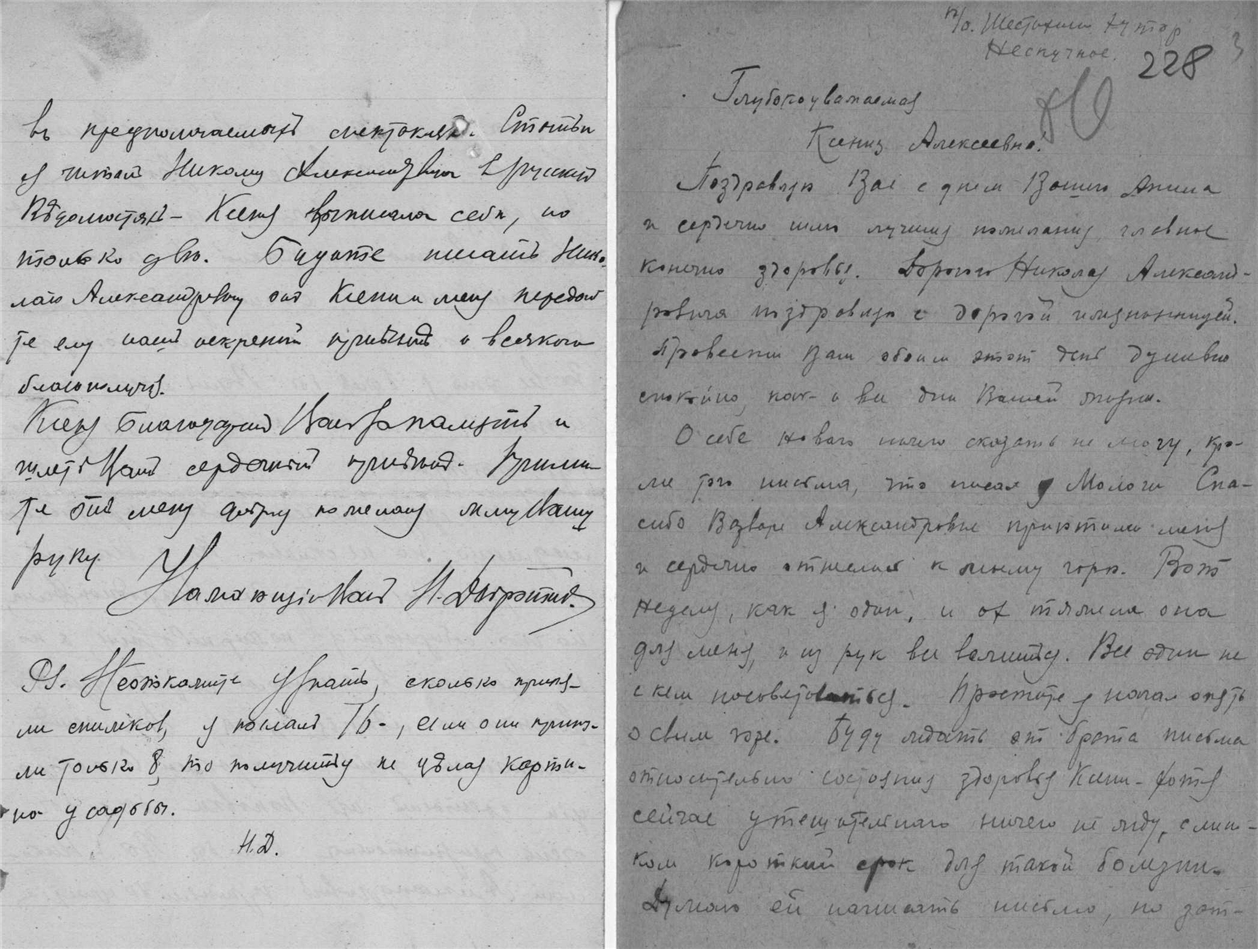 въ предполагаемыхъ спектакляхъ. Статьи
я читалъ Николая Александровича въ Русскихъ
Вѣдомостяхъ – Ксеня выписала себѣ, но
только двѣ. Будете писать Нико-
лаю Александровичу отъ Ксени и меня передай-
те ему нашъ искренній привѣтъ и всякаго
благополучія.
Ксеня благодаритъ Васъ за память и
шлетъ Вамъ сердечный привѣтъ. Прими-
те отъ меня добрыя пожеланія жму Вашу
руку.
Уважающій Васъ
PS. Не откажите узнать, сколько приня-
ли снимковъ, я послалъ 16-, если они приня-
ли только 8, то получится не цѣлая карти-
на усадьбы.
Н.Д.
п/о. Шестахин хутор
Нескучное.
3
228
Глубокоуважаемая
Ксения Алексеевна!
Поздравляю Вас с днем Вашего Ангела
и сердечно шлю лучшия пожелания главное
конечно здоровья. Дорогого Николая Александ-
ровича поздравляю с дорогой имянинницей.
Провести Вам обоим этот день душевно
спокойно, как и все дни Вашей жизни.
О себе нового ничего сказать не могу, кро-
ме того письма, что писал из Мологи Спа-
сибо Варваре Александровне приютила меня
и сердечно отнеслась к моему горю. Вот
неделя, как я один, и ох тяжела она
для меня, и из рук все валится. Все один не
с кем посоветоваться. Простите я начал опять
о своем горе. Буду ждать от брата письма
относительно состояния здоровья Ксени – хотя
сейчас утешительного ничего не жду, слиш-
ком короткий срок для такой болезни.
Думаю ей написать письмо, но зат-